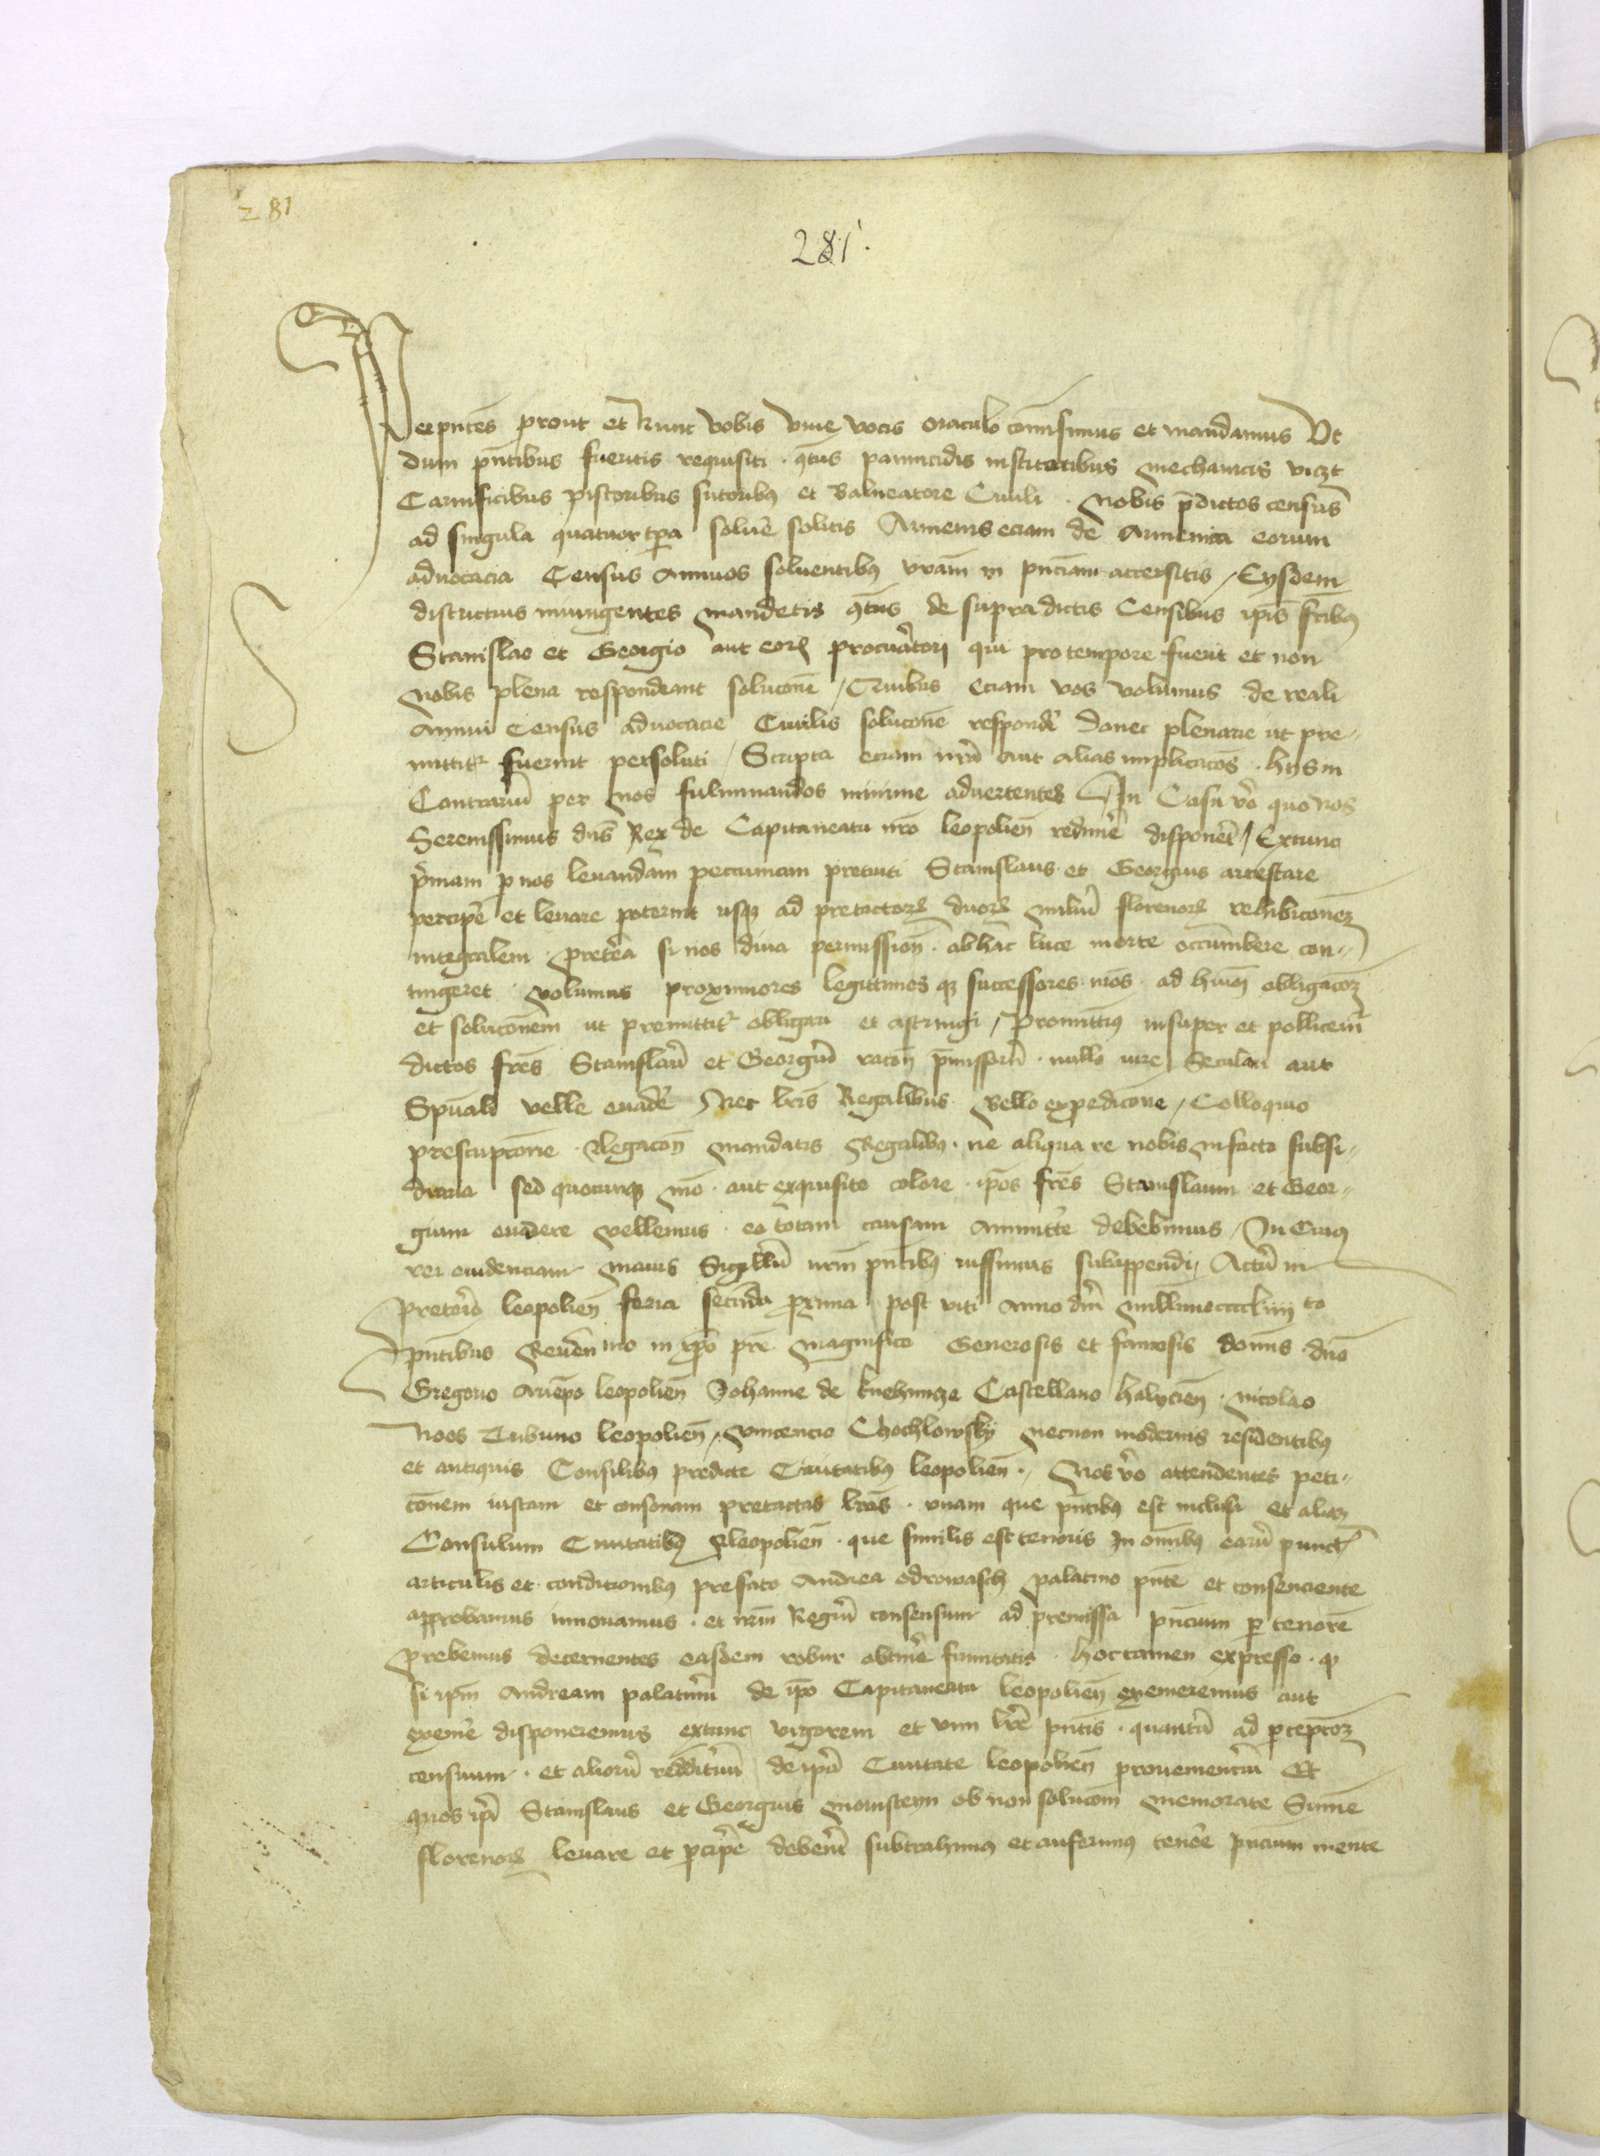 281
281
Per pntes prout et Nunc vobis vive vocis oraculo comisimus et mandamus Ut
dum pntibus fueritis requisiti qtus pannicidis institoribus Mechanicis viczt
Carnificibus pistoribus sutoribus et Balneatore Civili Nobis pdictos census
ad singula quatuor tpa solue solitis Armenis eciam de Armenica eorum
advocacia Census Annuos solventibus vram in pnciam accersitis Eysdem
districtius iniungentes Mandetis qtus de supradictis Censibus ipis fribus
Stanislao et Georgio aut eorum procuratori qui pro tempore fuerit et non
Nobis plena respondeant solucone Quibus eciam vos volumus de reali
Annui Census advocacie Civilis solucone responde donec plenarie ut pre-
mittitur fuerint persoluti Scripta eciam nra aut alias implicacos hys in
Contrariu per Nos fulminandos minime advertentes In Casu vo quo nos
Serenissimus dns Rex de Capitaneatu nro leopolien redime disponeret Extunc
pmam p nos levandam pecuniam pretacti Stanislaus et Georgius arrestare
percipe et levare poterint usque ad pretactorum duorum miliu florenorum rehibiconem
integralem pretea si nos diva permission ab hac luce morte occumbere con-
tingeret volumus proximiores legittimos que successores nros ad huius obligacom
et soluconem ut premittitur obligari et astringi Promittimus insuper et pollicemur
dictos fres Stanislau et Georgiu racon pmissoru nullo iure Seculari aut
Spuali velle evade Nec lris Regalibus Bello expedicone Colloquio
prescripcone Negacon Mandatis Regalibus ne aliqua re nobis in facto subsi-
diaria sed quocumque mo aut exquisito colore ipos fres Stanislaum et Geor-
gium evadere vellemus eo totam causam Ammitte debebimus In Cuius
rei evidenciam Maius Sigillu nrm pntibus iussimus subappendi Actu in
pretorio leopolien feria secunda proxima post viti Anno dni Millimoccccliiii to
pntibus Reveren mo in xpo pre Magnifico Generosis et famosis domis dno
Gregorio Arcepo leopolien Johanne de knehinicze Castellano halicien Nicolao
Noos Tribuno leopolien Vincencio Chochlowsky Necnon modernis residentibus
et antiquis Consulibus predicte Civitatibus leopolien Nos vo attendentes peti-
conem iustam et consonam pretactas lras unam que pntibus est inclusi et aliam
Consulum Civitatibus leopolien que similis est tenoris In omibus earu punctis
articulis et condicionibus prefato Andrea odrowasch palatino pnte et consenciente
approbamus innovamus et nrm Regiu consensum ad premissa pncium p tenore
prebemus decernentes easdem robur obtine firmitatis hoc tamen expresso q
si ipm Andream palatinu de ipo Capitaneatu leopolien exemeremus aut
exime disponeremus extunc vigorem et vim lre pntis quantu ad pcepcom
censuum et alioru reddituu de ipa Civitate leopolien provenienciu Et
quos ipi Stanislaus et Georgius Mornsteyn ob non solucom memorate Sume
florenorum levare et pcipe debent subtrahimus et auferimus tenore pncium mente